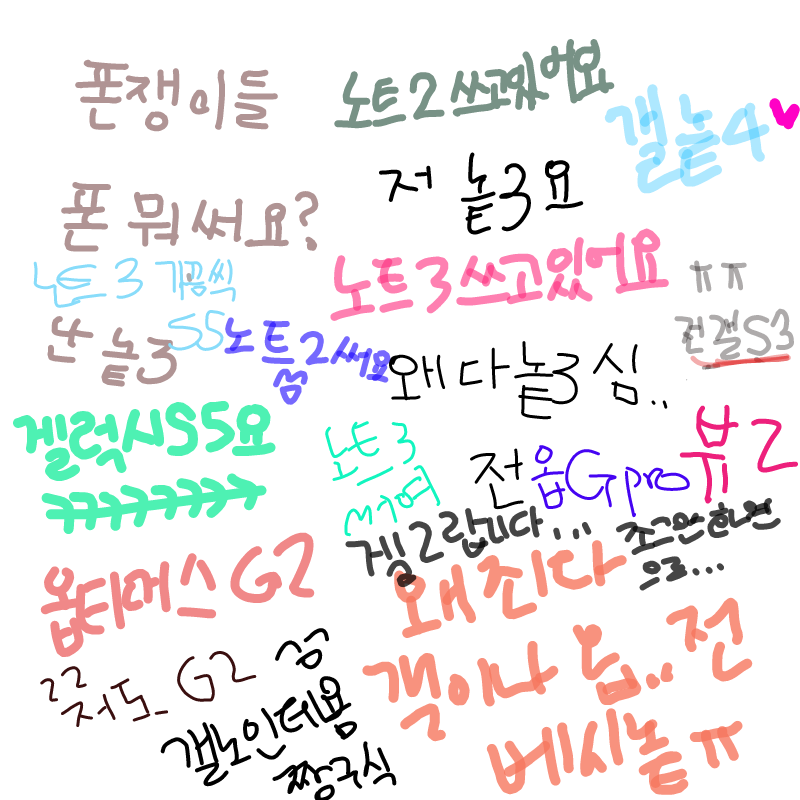 폰쟁이들
노트2쓰고있어요
갤놑4
저 놑3요
폰 뭐써요?
노트3쓰고있어요
ㅠㅠ
노트3 기공씩
난 놑3
S5
노트2써요
음
왜다놑3심..
전갤S3
겔럭시S5요
ㅋㅋㅋㅋㅋㅋㅋ
노트3
써여
전옵Gpro
뷰2
겔2랍니다...
조그만화면
으로...
옵티머스G2
왜죄다
갤이나 옵..전
베시놑ㅠ
ㄹㄹ
저도 G2
갤노인데욤
짱구식